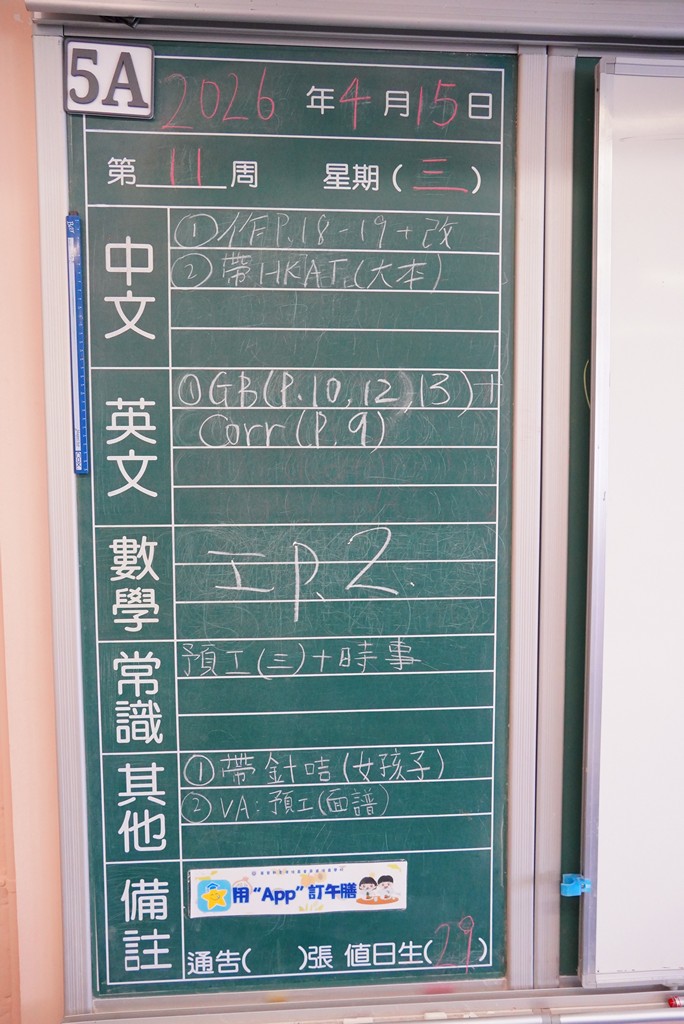 5A
2026年4月15日
第11周 星期(三)
中文
①作P.18-19+改
②帶HKAT(大本)
英文
①GB(P.10,12,13)+
Corr(P.9)
數學
工P.2.
常識
預工(三)+時事
其他
①帶針咭(女孩子)
②VA:預工(面譜)
備註
用“App”訂午膳
通告( )張 值日生(29)